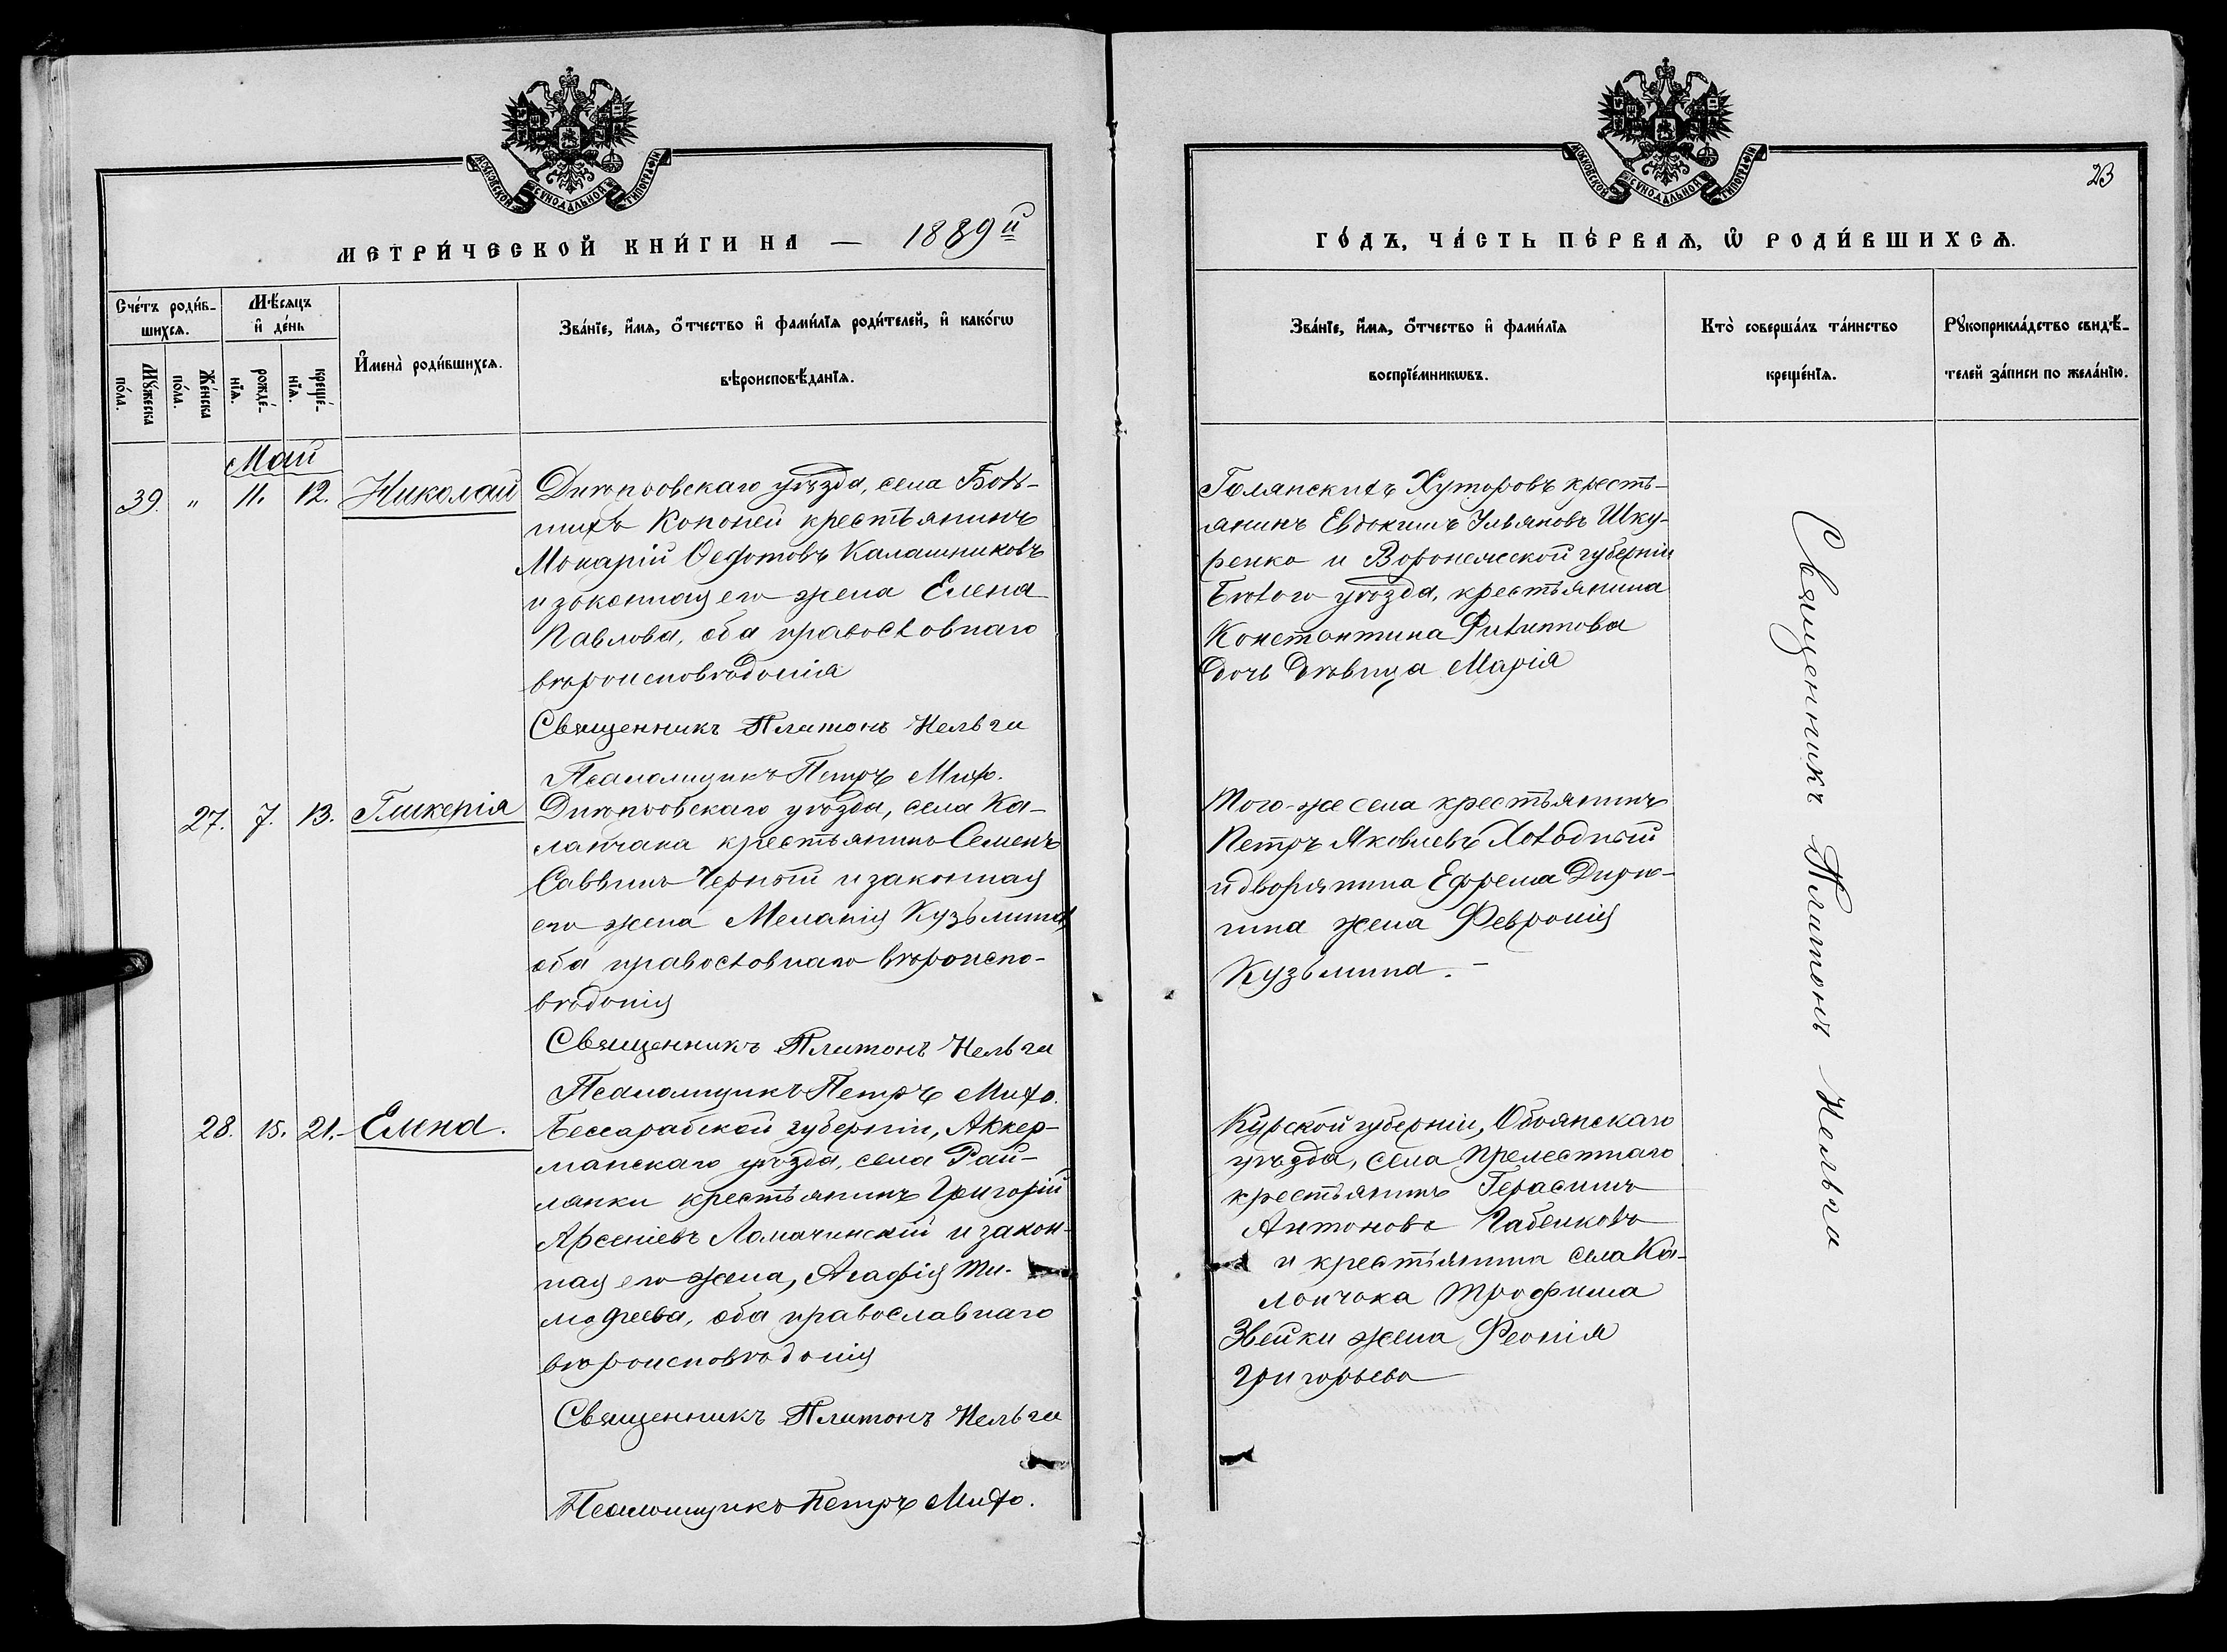 МОСКОВСКОЙ СѴНОДАЛЬНОЙ ТИПОГРАФІИ
МЕТРИ́ЧЕСКОЙ КНИ́ГИ НА — 1889й
Сче́тъ роди́в-
шихсѧ.
Мꙋ́жеска
по́ла.
Же́нска
по́ла.
Мѣ́сѧцъ
и де́нь
рожде́-
нїѧ.
креще́-
нїѧ.
Имена̀ роди́вшихсѧ.
Зва́нїе, и́мѧ, о́тчество и фами́лїѧ роди́телей, и како́гѡ
вѣроисповѣ́данїѧ.
Май
39. " 11. 12. Николай
Днѣпровскаго уѣзда, села Боль-
шихъ Копоней крестьянинъ
Макарій Ѳедотовъ Калашниковъ
и законная его жена Елена
Павлова, оба православнаго
вѣроисповѣданія
Священникъ Платонъ Нельга
Псаломщикъ Петръ
27. 7. 13. Гликерія
Днѣпровскаго уѣзда, села Ка-
ланчака крестьянинъ Семенъ
Саввинъ Черный и законная
его жена Меланія Кузьмина,
оба православнаго вѣроиспо-
вѣданія
Священникъ Платонъ Нельга
Псаломщикъ Петръ
28. 15. 21. Елена.
Бессарабской губерніи, Аккер-
манскаго уѣзда, села Рай-
лянки крестьянинъ Григорій
Арсеніевъ Ломачинскій и закон-
ная его жена, Агафія Ти-
мофеева, оба православнаго
вѣроисповѣданія
Священникъ Платонъ Нельга
Псаломщикъ Петръ
МОСКОВСКОЙ СѴНОДАЛЬНОЙ ТИПОГРАФІИ
23
ГО́ДЪ, ЧА́СТЬ ПЕ́РВАѦ, Ѡ РОДИ́ВШИХСѦ.
Зва́нїе, и́мѧ, о́тчество и фами́лїѧ
воспрїе́мникѡвъ.
Кто̀ соверша́лъ та́инство
креще́нїѧ.
Рꙋкоприкла́дство свидѣ́-
телей за́писи по жела́нїю.
Хуторовъ кресть-
янинъ Евдокимъ Ульяновъ Шку-
ренко и Воронежской губерніи
уѣзда, крестьянина
Константина Филиппова
дочь дѣвица Марія
Того-же села крестьянинъ
Петръ Яковлевъ Холодный
и дворянина Ефрема
жена Февронія
Кузьмина. –
Курской губерніи, Обоянскаго
уѣзда, села Прелестнаго
крестьянинъ Герасимъ
Антоновъ
и крестьянина села Ка-
ланчака Трофима
Звейки жена Феонія
Григорьева
Священникъ Платонъ Нельга